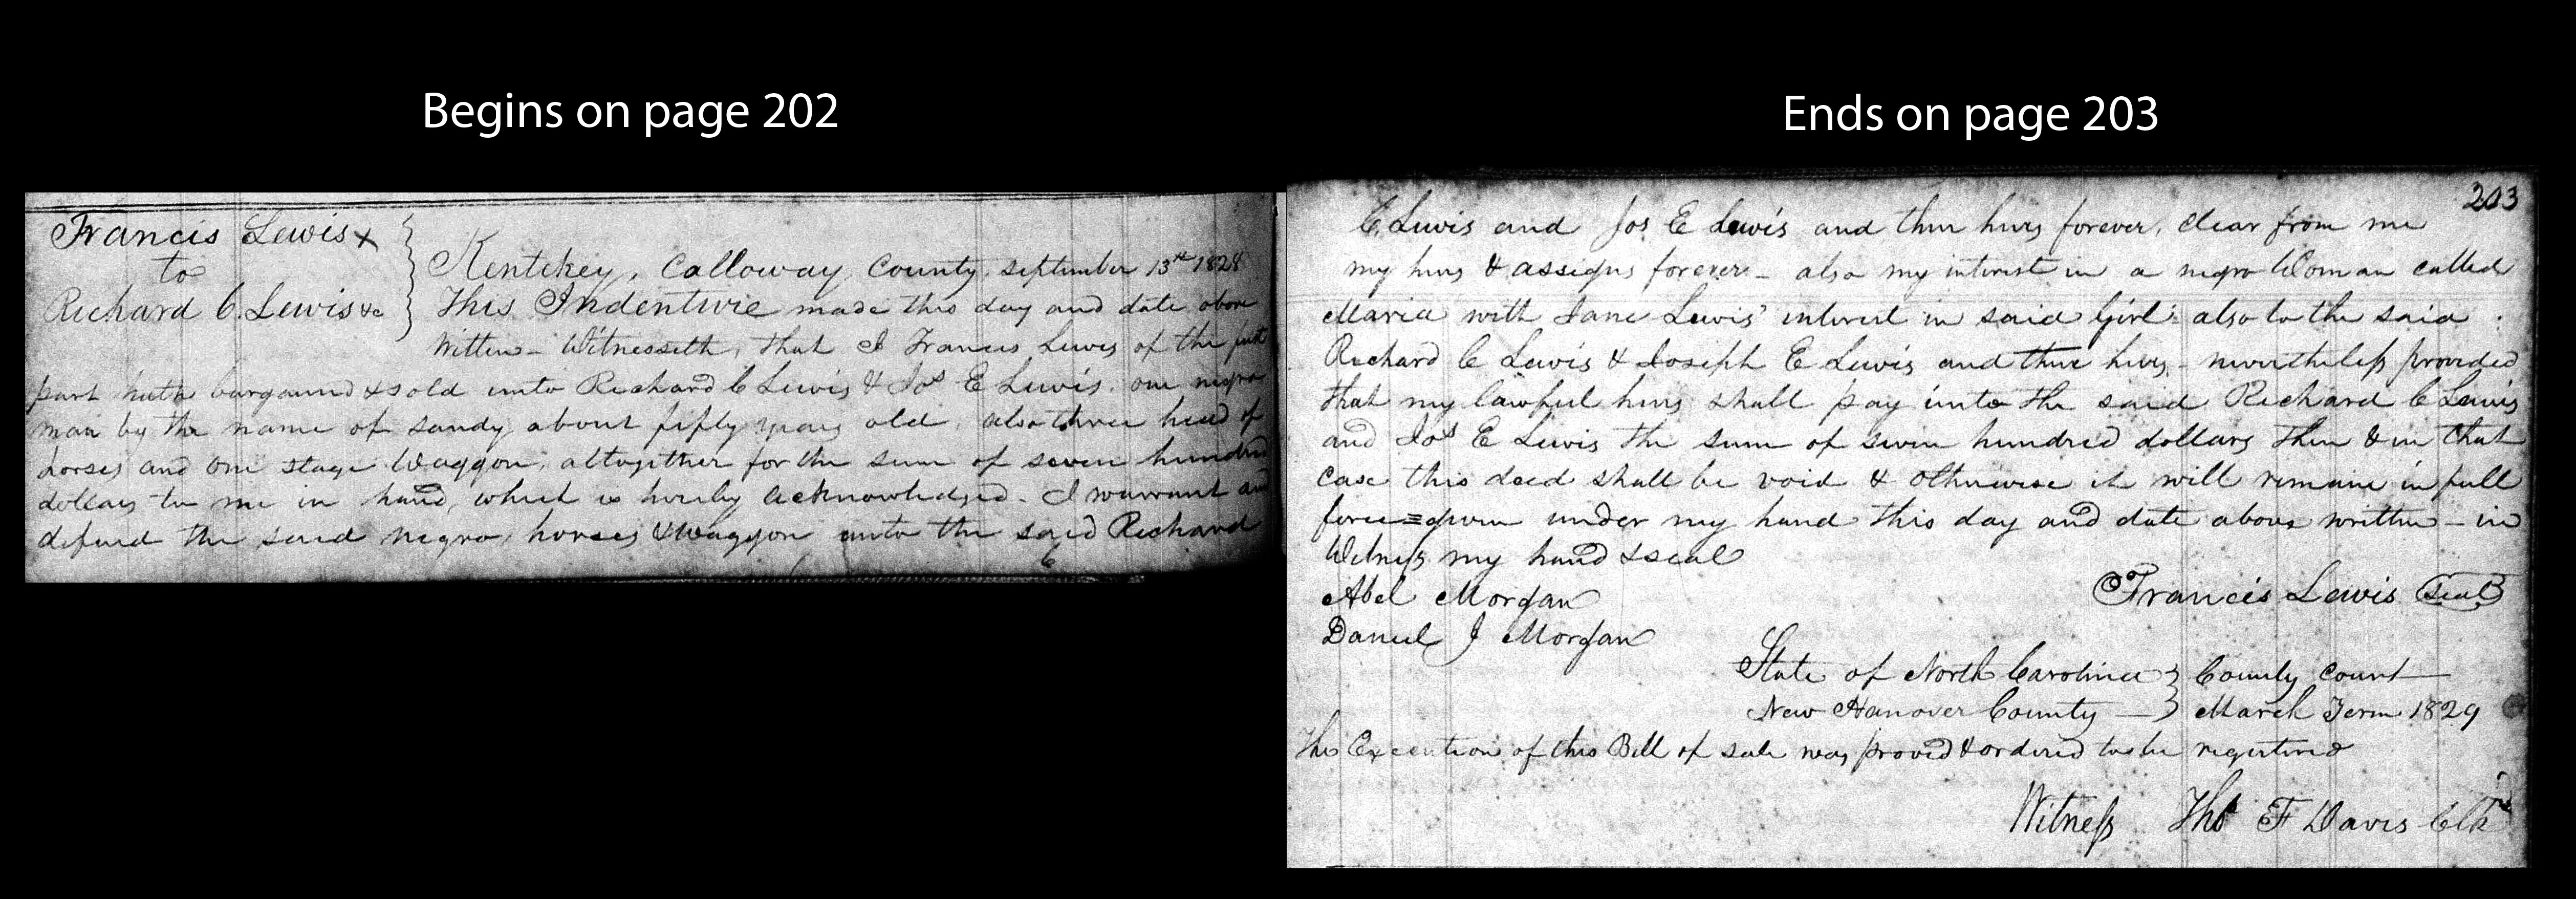 Begins on page 202
Francis Lewis x
to
Richard C. Lewis &c
Kentckey, Calloway County. september 13th 1828
This Indenture made this day and date above
Written - Witnesseth, that I Francis Lewis of the
part hath bargained & sold unto Richard C Lewis & Jos E Lewis. one negro
man by the name of Sandy about fifty years old, also three head of
horses and one stage Waggon, altogether for the sum of seven hundred
dollars to me in hand, which is hereby acknowledged. I warrant and
defend the said negro, horses & Waggon unto the said Richard
Ends on page 203
203
C. Lewis and Jos E Lewis and their heirs forever, clear from me
my heirs & assigns forever - also my interest in a negro Woman called
Maria with Jane Lewis' interest in said Girl also to the said
Richard C Lewis & Joseph E Lewis and their heirs - nevertheless provided
that my lawful heirs shall pay unto the said Richard C Lewis
and Jos E Lewis the sum of seven hundred dollars then & in that
case this deed shall be void & otherwise it will remain in full
force = given under my hand this day and date above written - in
Witness my hand & seal
Abel Morgan
Francis Lewis Seal
Daniel J Morgan
State of North Carolina } County Court
New Hanover County } March Term 1829
The Execution of this Bill of sale was proved & ordered to be registered
Witness Thos F Davis Clk